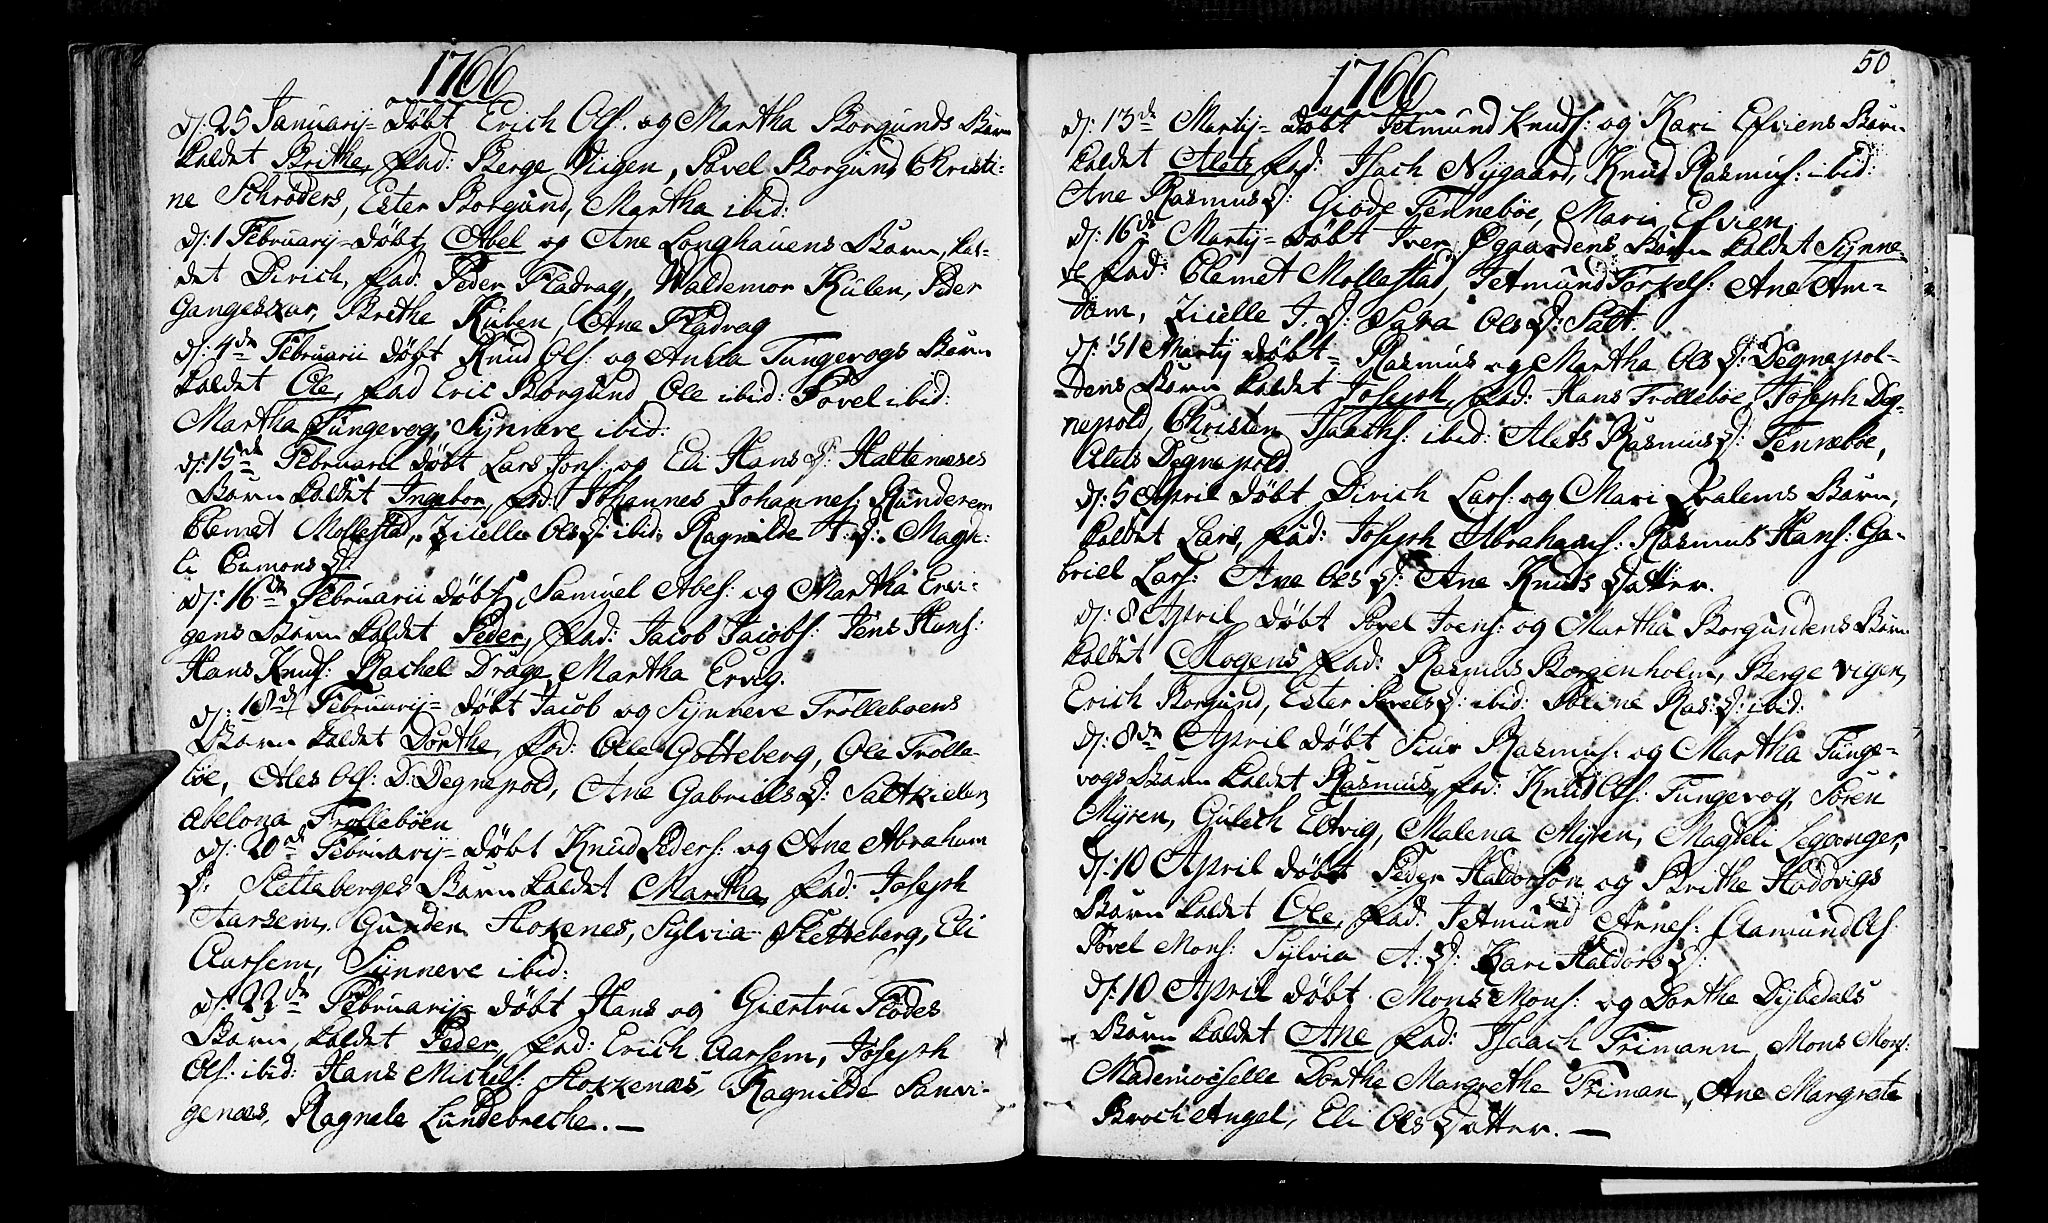 1766
d: 25 Januarij= døbt Erich Ols: og Martha Borgunds Barn
kaldet Brithe, fad: Berge Viigen, Povel Borgund Christi-
ne Schrøders, Ester Borgund, Martha ibid:
d: 1 Februarij= døbt Abel og Ane Langhauens Barn, kal-
det Dirich, fad: Peder Fladvag, Waldemor Kulen, Peder
Brithe Ane Fladvag
d: 4de Februarii døbt Knud Ols: og Anna Tungevogs Barn
kaldet Ole, fad Eric Borgund Ole ibid: Povel ibid:
Martha Tungevog, Synneve ibid:
d: 15de Februarii døbt Lars Jons: og Eli Hans D: Haltenæses
Barn kaldet Ingebor, fad: Johannes Johannes: Runderem
Clemet Mollestad, Zicelle Ols D: ibid: Ragnilde D: Magde-
li Simons D:
d: 16de Februarii døbt Samuel Abels: og Martha Ervi-
gens Barn kaldet Peder, fad: Jacob Jacobs: Jens Hans:
Hans Knuds: Rachel Drage, Martha Ervig.
d: 18de Februarij= døbt Jacob og Synneve Trolleboens
Barn kaldet Dorthe, fad: Ole Gotteberg, Ole Trolle-
bøe, Ales Ols: D: Degnepold, Ane Gabriels D: Saltkielen
Abelona Trollebøen
d: 20de Februarij= døbt Knud Peders: og Ane Abraham
D: Slettebergs Barn kaldet Martha, fad: Joseph
Aarsem, Gunder Stokenes, Sylvia Sletteberg, Eli
Aarsem, Synneve ibid:
d: 22de Februarij= døbt Hans og Giertru Flodes
Barn, kaldet Peder, fad: Erich Aarsem, Joseph
Ols: ibid: Hans Michels: Stokkenæs, Ragnilde Sanvi-
genæs, Ragnele Lundebreche. —
50
1766
d: 13de Martij= døbt Jetmund Knuds: og Kari Efviens Barn
kaldet Alets fad: Isach Nygaard, Knud Rasmus: ibid:
Ane Rasmus D: Giøde Tennebøe, Mari Efvien
d: 16de Martij= døbt Iver Øgaardens Barn kaldet Synne-
ve fad: Clemet Mollestad, Jetmund Torkels: Ane Am-
dam, Zicelle J. D: Sara Ols D: Salt.
d: 31 Martij døbt= Rasmus og Martha Ols D: Degnepol-
dens Barn kaldet Joseph, fad: Hans Trollebøe, Joseph Deg-
nepold, Christen Isachs: ibid: Alets Rasmus D: Tennebøe,
Alets Degnepold.
d: 5 April døbt Dirich Lars: og Mari Qvalems Barn,
kaldet Lars, fad: Joseph Abrahams: Rasmus Hans: Ga-
briel Lars: Ane Ols D: Ane Knuds Datter.
d: 8 April døbt Povel Ivers: og Martha Borgundens Barn
kaldet Mogens fad: Rasmus Borgenholm, Berge Vigen,
Erich Borgund, Ester Povels D: ibid: Oline Ras: D: ibid:
d: 8de April døbt Siur Rasmus: og Martha Tunge-
vogs Barn kaldet Rasmus, fad: Knud Ols: Tungevog, Søren
Myren, Gulech Eltvig, Malena Myren, Magdeli Legvonger,
d: 10 April døbt Peder Haldorson og Brithe Hodvigs
Barn kaldet Ole, fad: Jetmund Arnes: Aamund Ols:
Povel Mons: Sylvia A: D: Kari Haldors D:
d: 10 April døbt Mons Mons: og Dorthe Dybedals
Barn kaldet Ane fad: Isaach Frimann, Mons Mons:
Mademoiselle Dorthe Margrethe Friman, Ane Margrete
Broch Angel, Eli Ols Datter. —